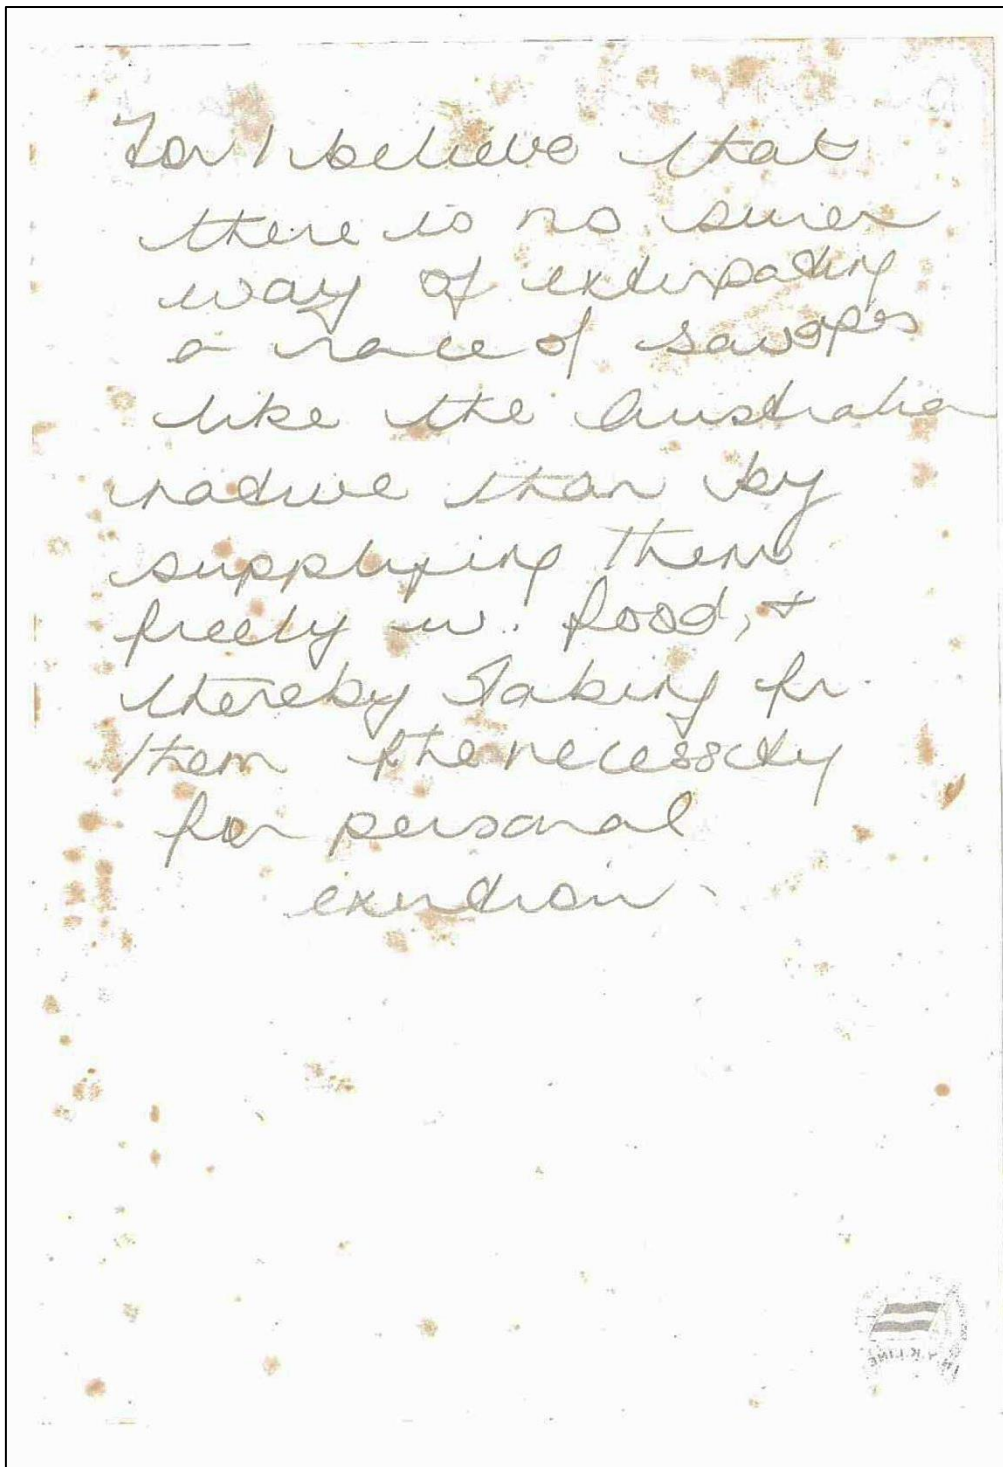 For I believe that
there is no surer
way of extirpating
a race of savages
like the Australian
native than by
supplying them
freely w. food, &
thereby taking fr.
them the necessity
for personal
exertion.
N.Y.K. LINE